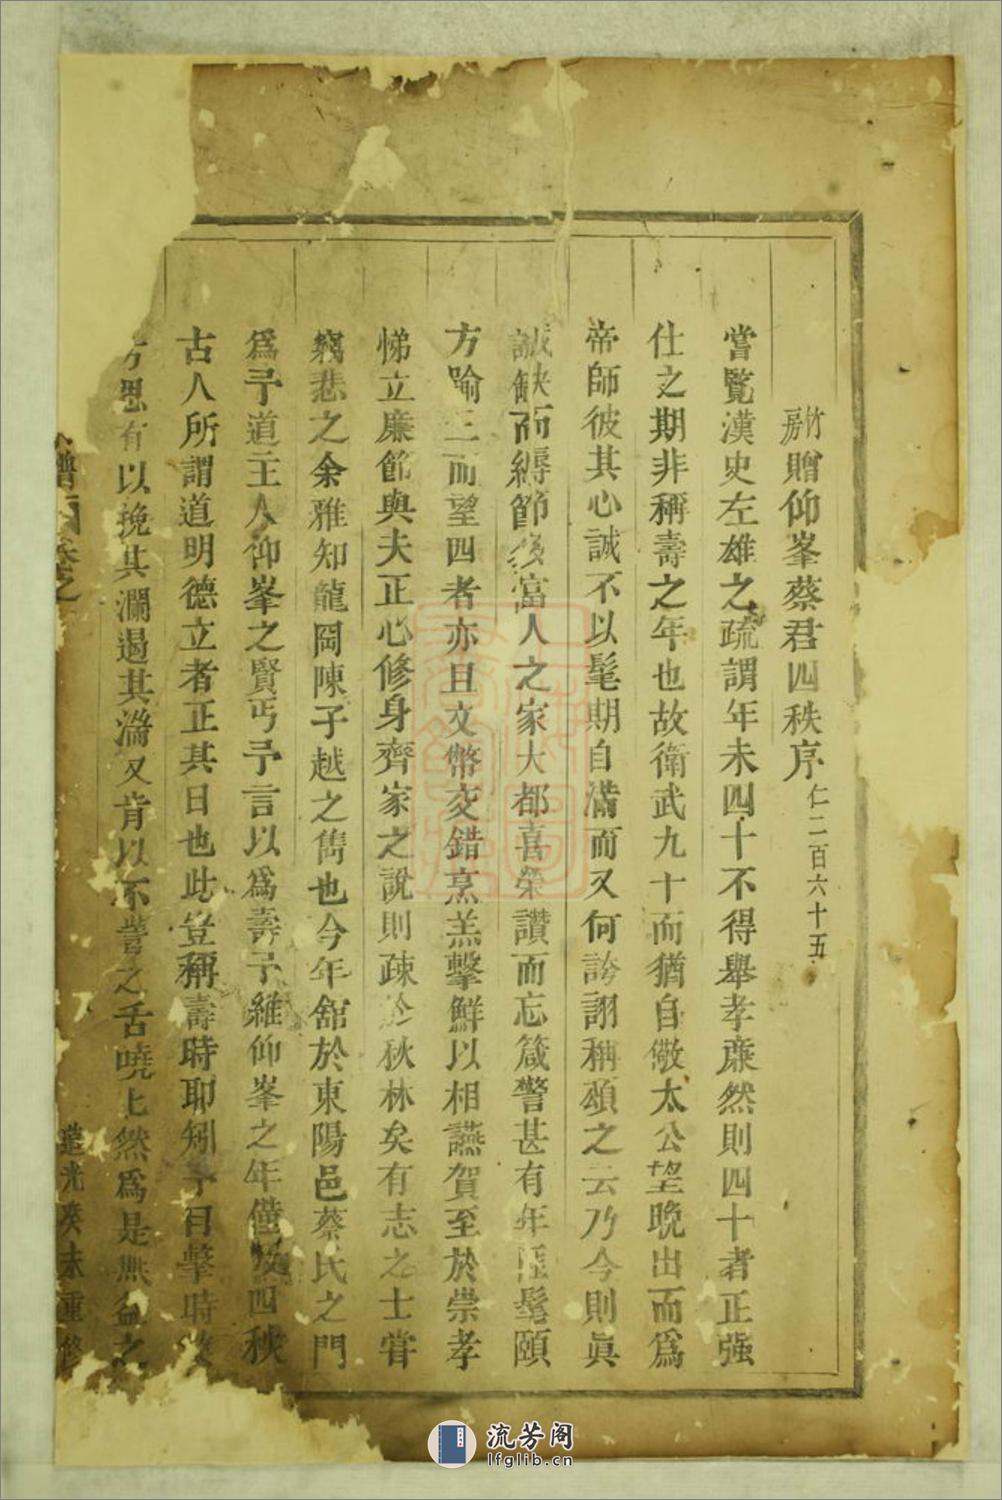 竹房贈仰峯蔡君四秩序仁二百六十五
嘗覽漢史左雄之疏謂年未四十不得舉孝亷然則四十者正强
仕之期非稱壽之年也故衛武九十而猶自儆太公望晚出而爲
帝師彼其心誠不以髦期自滿而又何誇詡稱頌之云乃今則眞
誠缺而縟節後富人之家大都喜榮讚而忘箴警甚有年髦頤
方踰三而望四者亦且文幣交錯烹羔擊鮮以相讌賀至於崇孝
悌立廉節與夫正心修身齊家之說則疎於秋林矣有志之士甞
竊悲之余雅知龍岡陳子越之雋也今年舘於東陽邑蔡氏之門
爲予道主人仰峯之賢丐予言以爲壽予維仰峯之年僅及四秩
古人所謂道明德立者正其日也此豈稱壽時耶矧予目擊時
方思有以挽其瀾遏其瀹又肯以不訾之舌嘵上然爲是無益之
譜
卷之
道光癸未重修
流芳阁
lfglib.cn